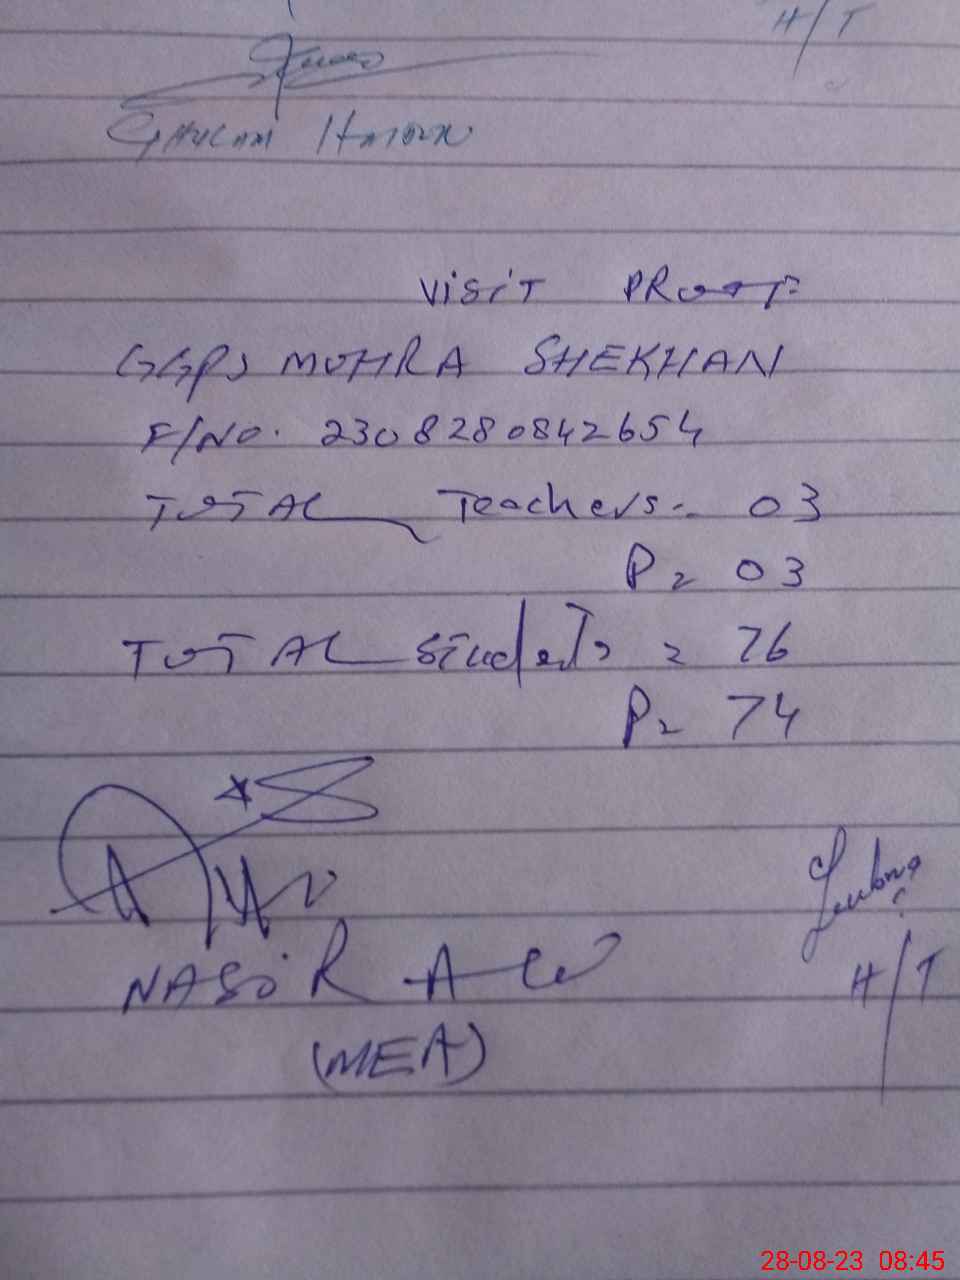 H/T
GHULAM
VISIT PROOF
GGPS MOHRA SHEKHAN
F/NO. 2308280842654
TOTAL Teachers = 03
P = 03
TOTAL Students = 76
P = 74
NASIR ALI
(MEA)
H/T
28-08-23 08:45